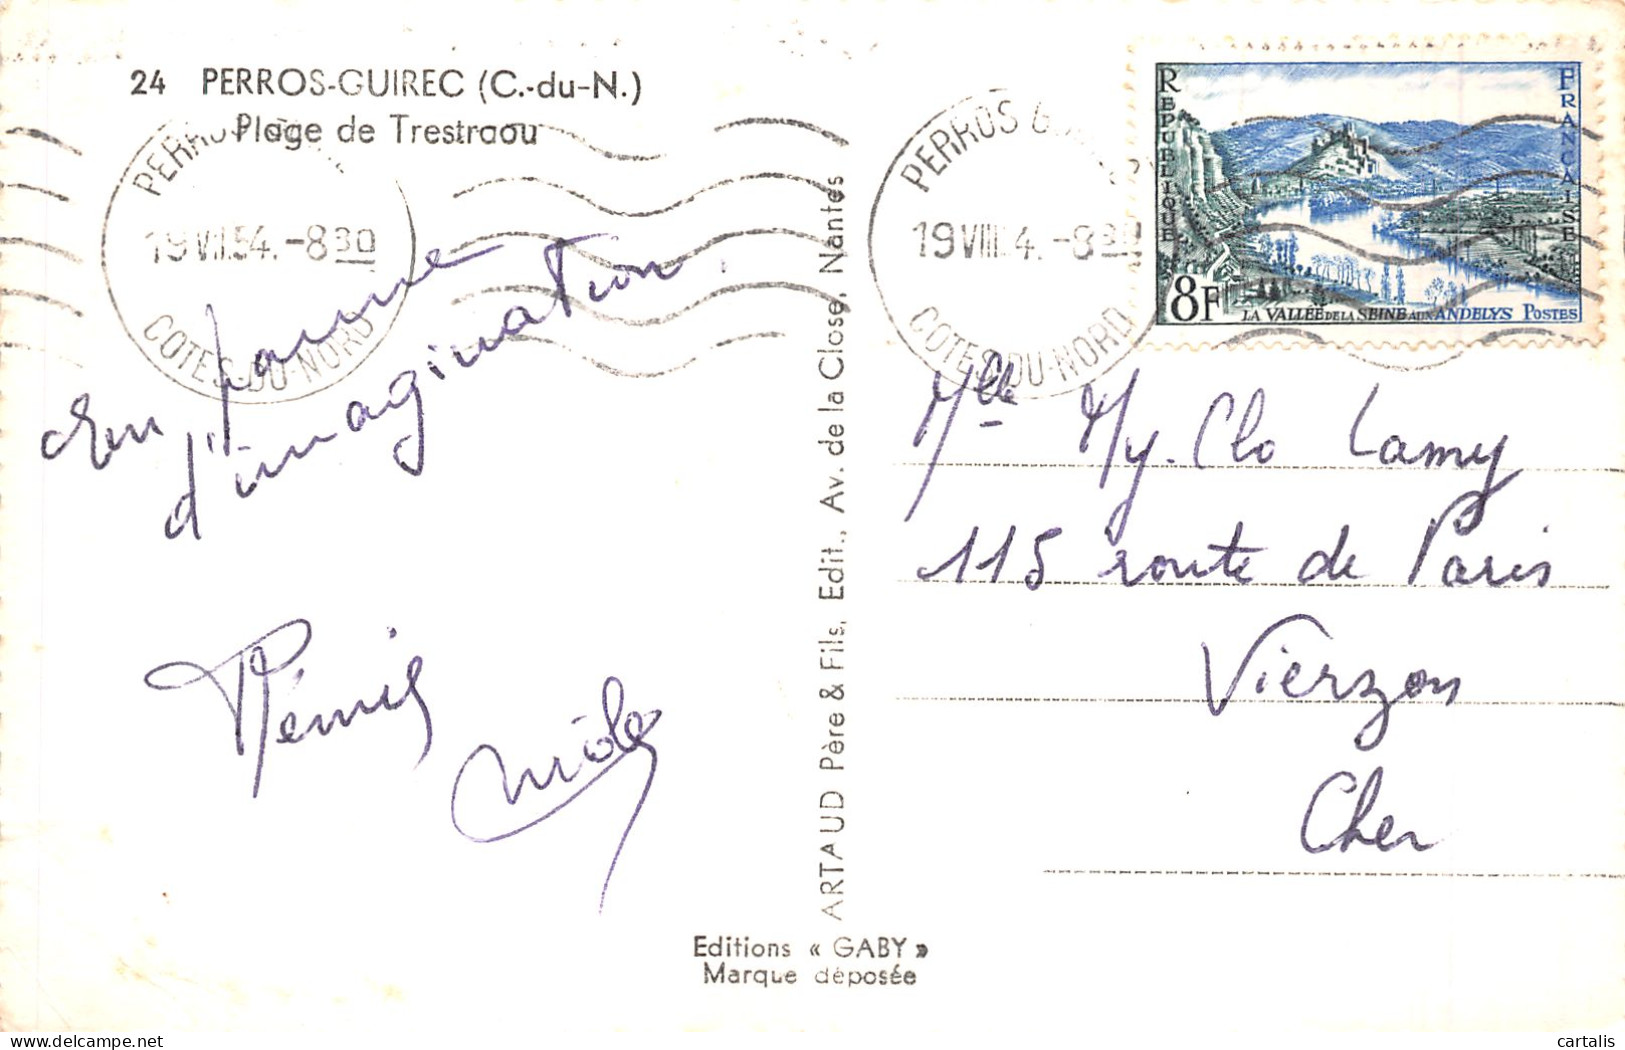 24 PERROS-GUIREC (C.-du-N.)
Plage de Trestraou
PERROS
19 VIII.54.-8 30
COTES-DU-NORD
En panne
d'imagination.
Rémis
nicole
ARTAUD Père & Fils, Edit., Av. de la Close, Nantes
Editions « GABY »
Marque déposée
PERROS GUI
19 VIII 4.-8 30
COTES-DU-NORD
REPUBLIQUE FRANCAISE
8F
LA VALLÉE DE LA SEINE AUX ANDELYS POSTES
Mlle My. Clo Lamy
115 route de Paris
Vierzon
Cher
cartalis